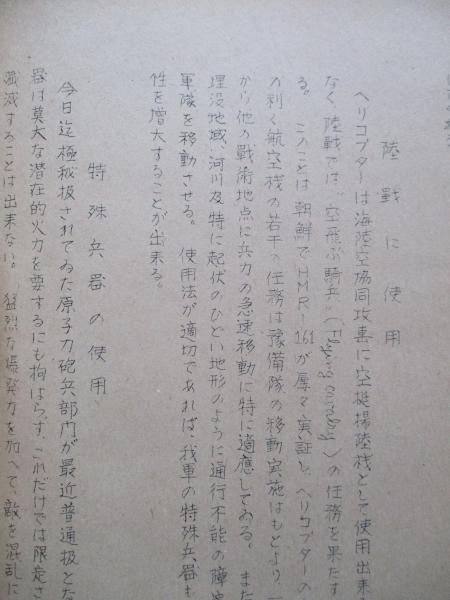 陸戦に使用
ヘリコプターは海陸空協同攻撃に空挺揚陸機として使用出来
なく、陸戦では"空飛ぶ騎兵"(Flying cavalry)の任務を果たす
る。このことは朝鮮でHMR-161が屡々実証し、ヘリコプターの
の利く航空機の若干の任務は豫備隊の移動実施はもとより、一
から他の戦術地点に兵力の急速移動に特に適應してゐる。また
埋没地域、河川及特に起伏のひどい地形のように通行不能の障
軍隊を移動させる。使用法が適切であれば、我軍の特殊兵器も
性を増大することが出来る。
特殊兵器の使用
今日迄極秘扱されてゐた原子力砲兵部門が最近普通扱とな
器は莫大な潜在的火力を要するにも拘はらず、これだけでは限定さ
殲滅することは出来ない。猛烈な爆発力を加へて、敵を混乱に